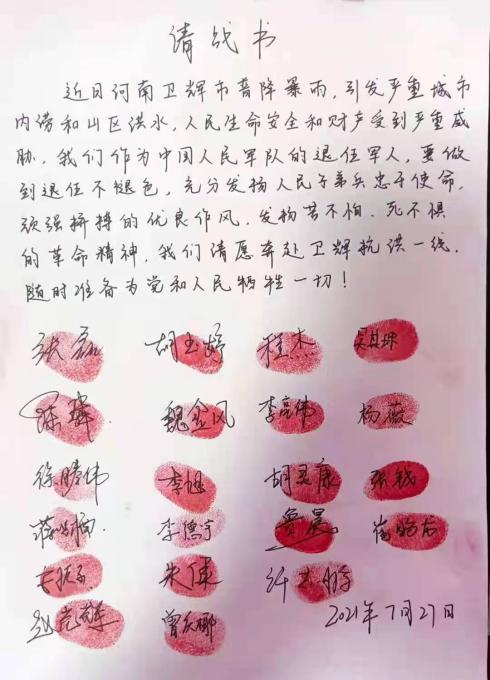 请战书
近日河南卫辉市普降暴雨,引发严重城市
内涝和山区洪水,人民生命安全和财产受到严重威
胁,我们作为中国人民军队的退伍军人,要做
到退伍不褪色,充分发扬人民子弟兵忠于使命,
顽强拼搏的优良作风,发扬苦不怕、死不惧
的革命精神,我们请愿奔赴卫辉抗洪一线,
随时准备为党和人民牺牲一切!
张磊 胡玉婷 程杰
陈玮 魏金凤 李亮伟 杨薇
徐腾伟 李旭 胡灵康 张钱
李德宇 贾晨
朱倩
2021年7月27日